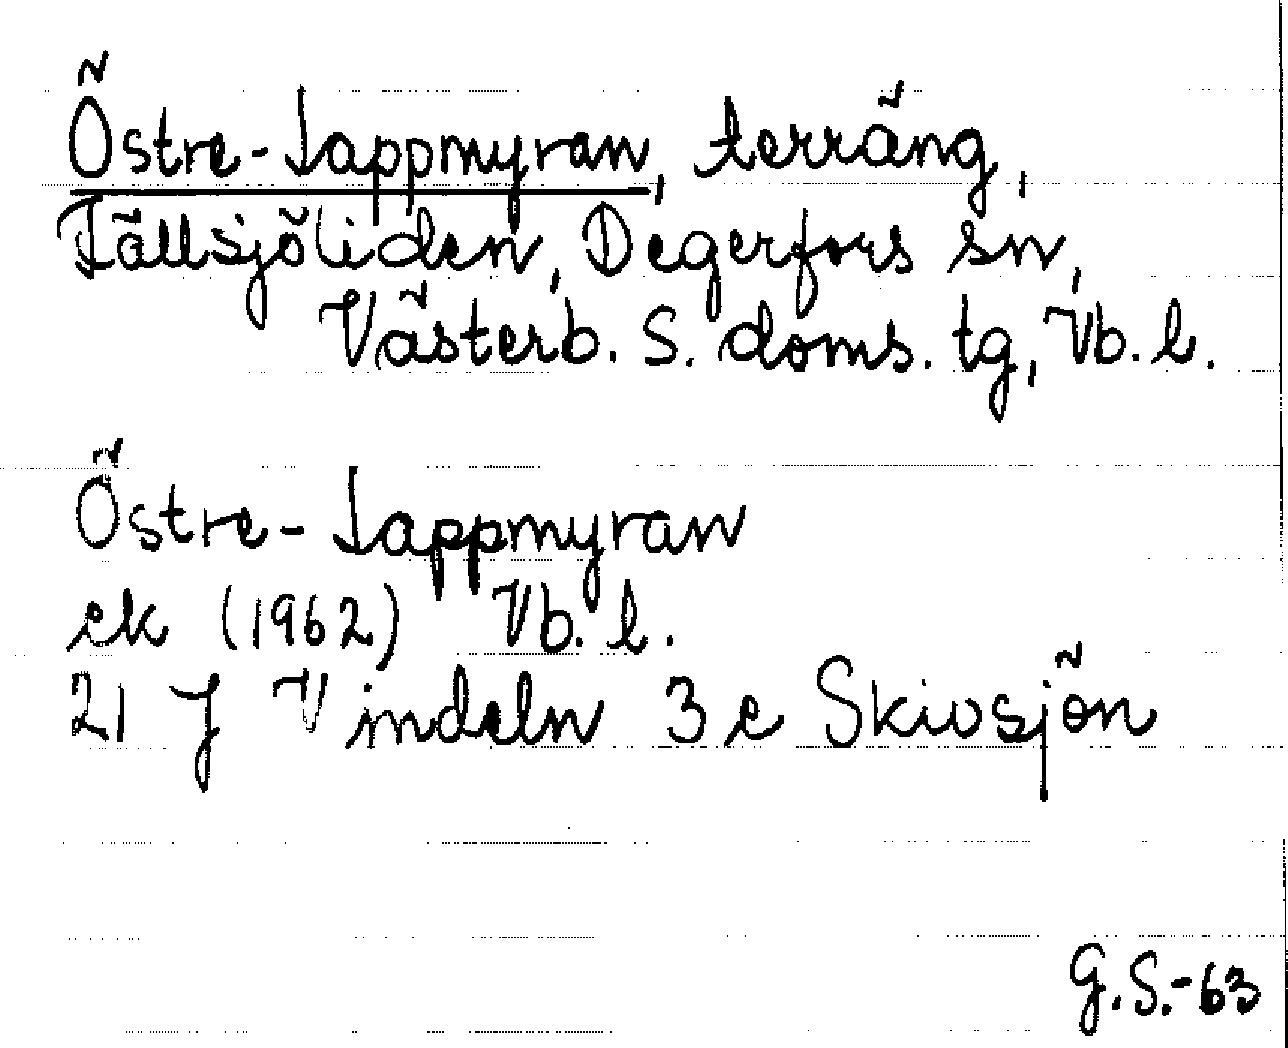 Östre-Lappmyran, terräng,
Fällsjöliden, Degerfors sn,
Västerb. S. doms. tg, Vb. l.
Östre-Lappmyran
ek (1962) Vb. l.
21 J Vindeln 3 e Skivsjön
G.S.-63